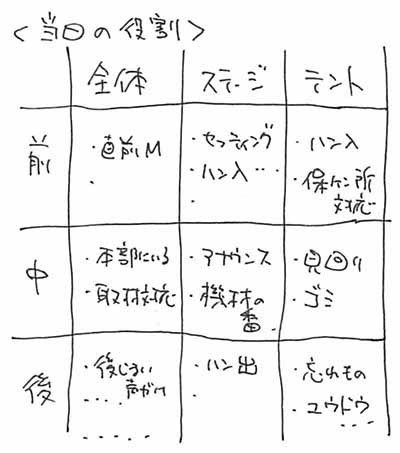 <当日の役割>
全体 ステージ テント
前
・直前M
・
・セッティング
・ハン入…
・
・ハン入
・保ケン所
対応
中
・本部にいる
・取材対応
・アナウンス
・機材の
番.
・見回り
・ゴミ
後
・後じまい
声がけ
・・・・
・・・・・
・ハン出
・
・忘れもの
・ユウドウ
・・・・・